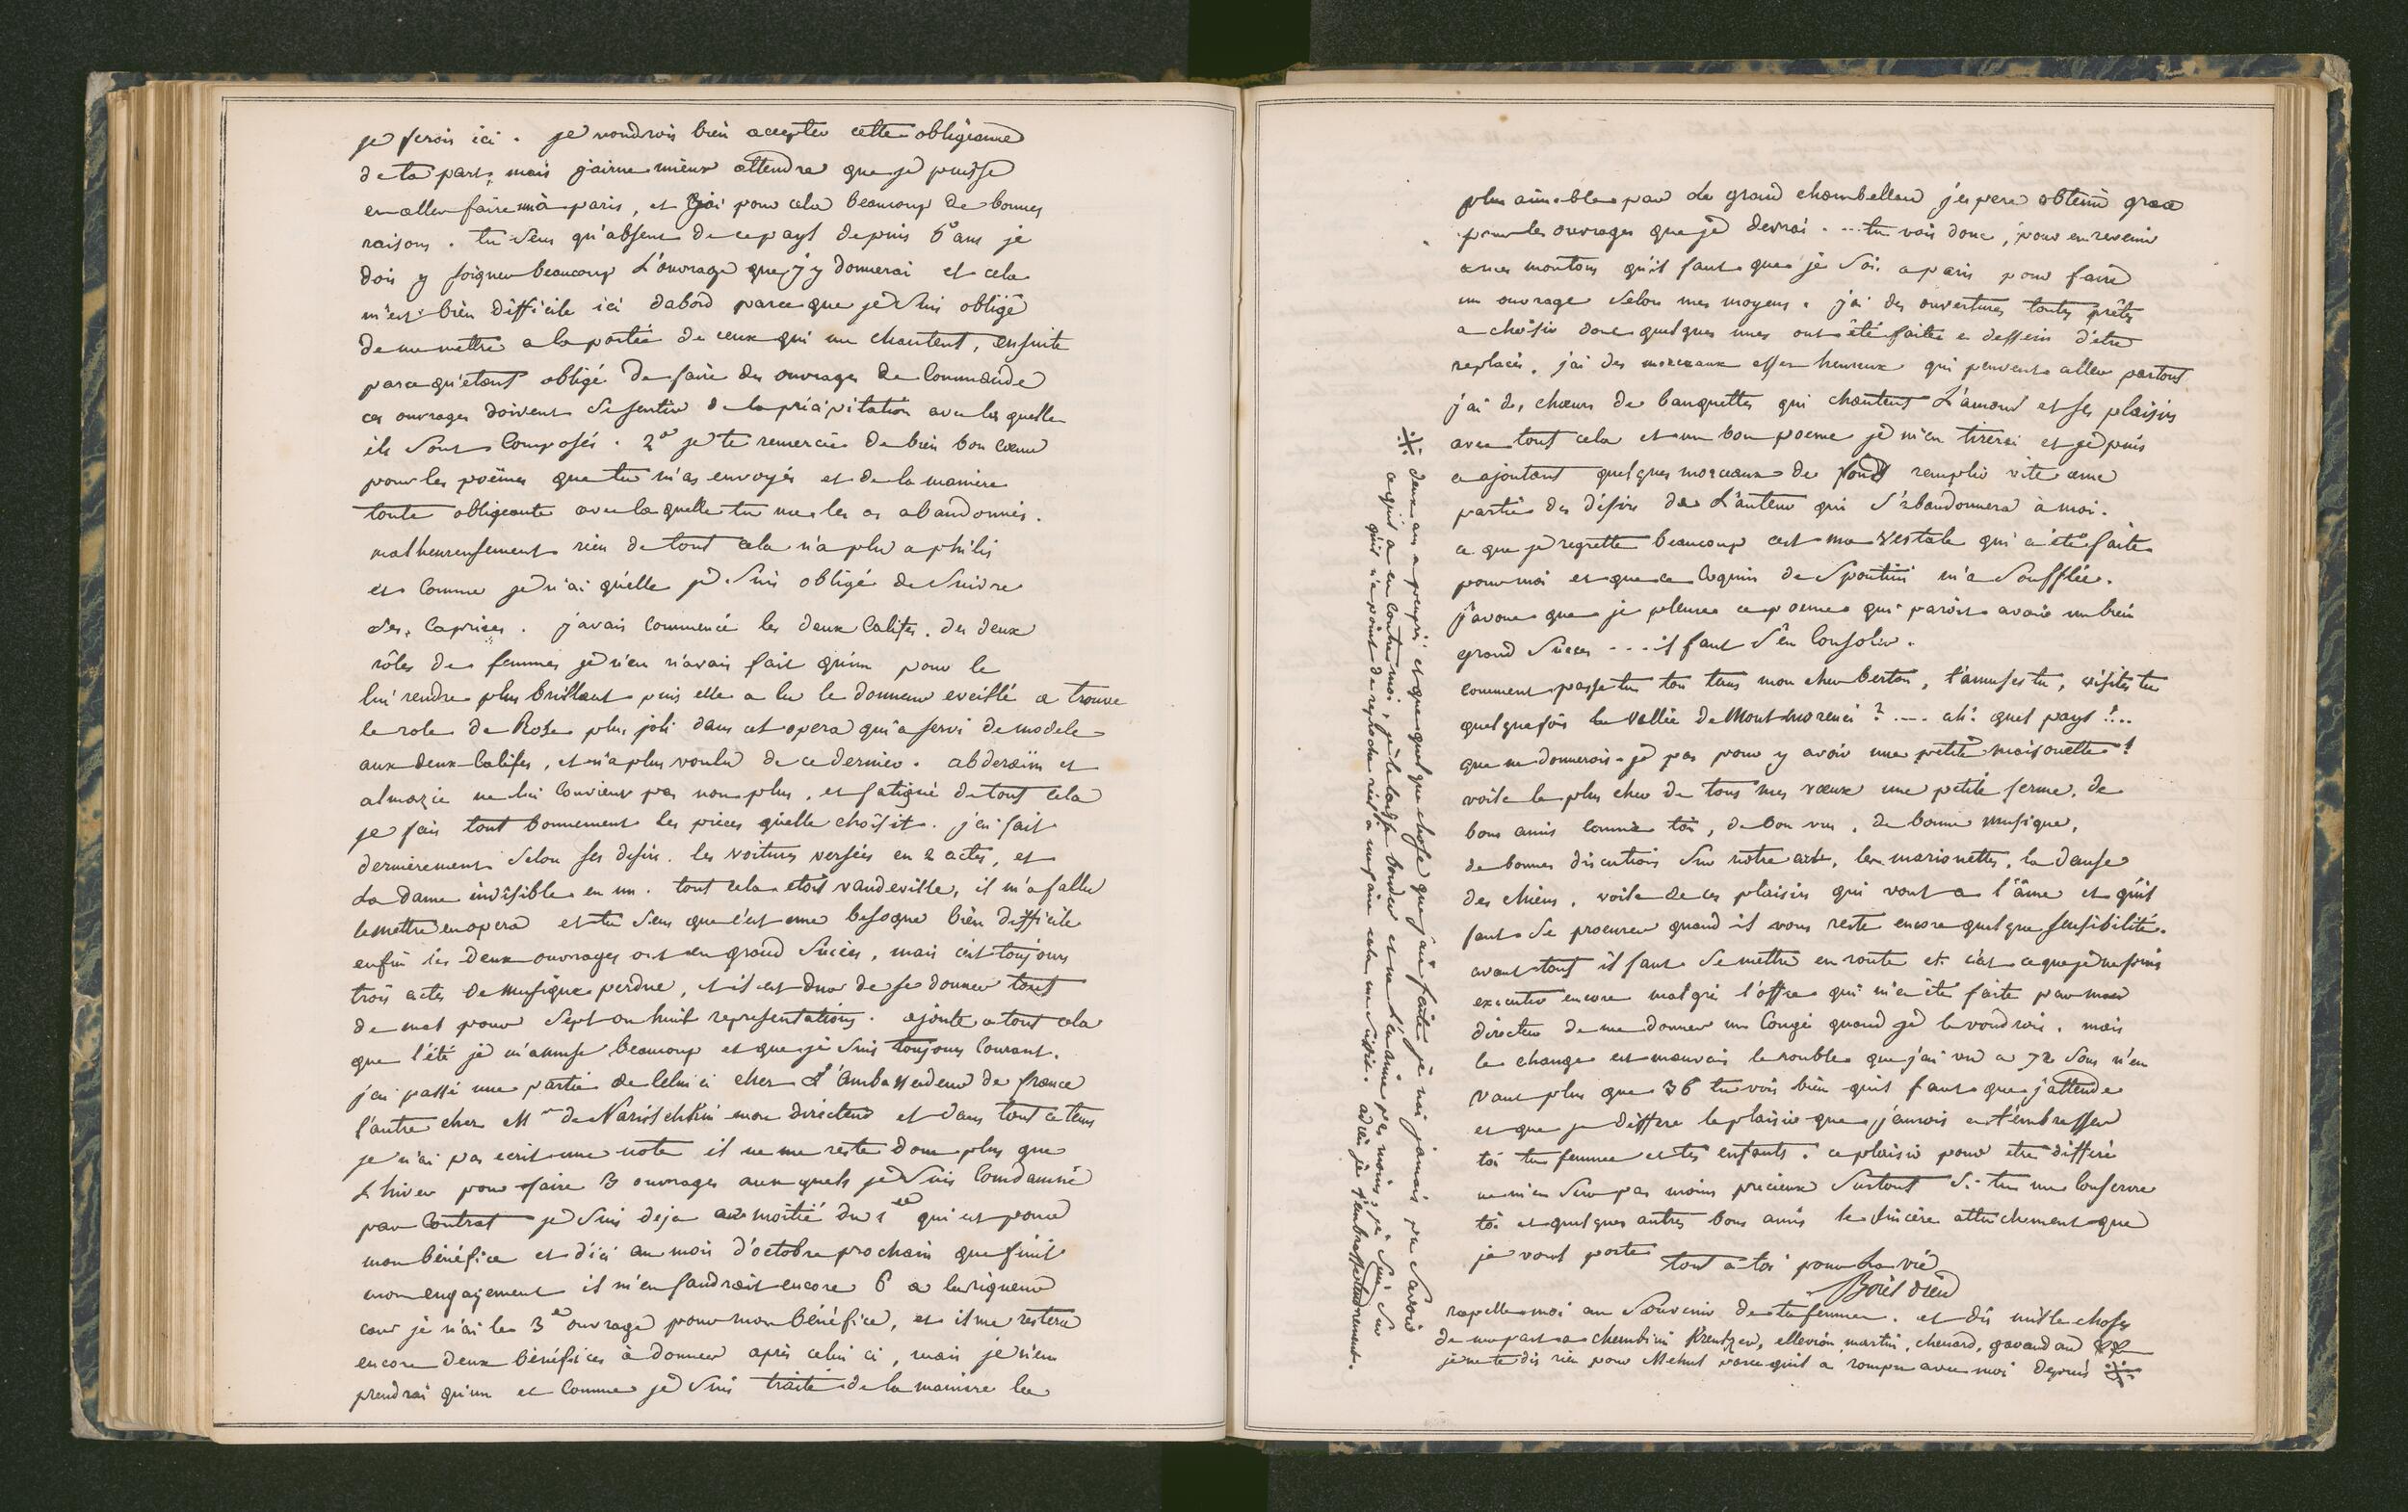 je ferois ici . je voudrois bien accepter cette obligeance
de ta part, mais j'aime mieux attendre que je puisse
en aller faire un à paris, et j'ai pour cela beaucoup de bonnes
raisons . tu sens qu'absent de ce pays depuis 6 ans je
dois y soigner beaucoup L'ouvrage que j'y donnerai et cela
m'est bien difficile ici dabord parce que je suis obligé
de me mettre a la portée de ceux qui me chantent, ensuite
parce qu'etant obligé de faire des ouvrages de Commande
ces ouvrages doivent se sentir de la précipitation avec laquelle
ils sont Composés . 2º je te remercie de bien bon cœur
pour les poëmes que tu m'as envoyés et de la maniere
toute obligeante avec laquelle tu me les as abandonnés.
malheureusement rien de tout cela n'a plu a philis
et Comme je n'ai qu'elle je suis obligé de suivre
ses Caprices . j'avais Commencé les deux Califes. des deux
rôles de femmes je n'en n'avais fait qu'un pour le
lui rendre plus brillant puis elle a lu le donneur eveillé a trouvé
le role de Rose plus joli dans cet opera qui a servi de modele
aux deux Califes, et n'a plus voulu de ce dernier . abderaïm et
almazie ne lui Convient pas non plus, et fatigué de tout cela
je fais tout bonnement les pieces qu'elle choisit. j'ai fait
dernierement selon ses desirs. les voitures versées en 2 actes, et
La dame invisible en un. tout cela etoit vaudeville, il m'a fallu
le mettre en opera et tu sens que c'est une besogne bien difficile
enfin les deux ouvrages ont eu grand succès, mais c'est toujours
trois actes de musique perdue, et il est dur de se donner tant
de mal pour sept ou huit representations. ajoute a tout cela
que l'été je m'amuse beaucoup et que je suis toujours Courant.
j'ai passé une partie de celui ci chez L'ambassadeur de france
l'autre chez Mr de Narischkin mon directeur et dans tout ce tems
je n'ai pas ecrit une note il ne me reste donc plus que
L'hiver pour faire 3 ouvrages aux quels je suis Comdamné
par Contrat je suis deja a moitié du 1er qui est pour
mon bénéfice et d'ici au mois d'octobre prochain que finit
mon engagement il m'en faudrait encore 6 a la rigueur
car je n'ai le 3e ouvrage pour mon bénéfice, et il me restera
encore deux bénéfices à donner après celui ci, mais je n'en
prendrai qu'un et Comme je suis traité de la maniere la
plus aimable par Le grand chambellan j'espere obtenir grace
pour les ouvrages que je devrai . ... tu vois donc, pour en revenir
a mes moutons qu'il faut que je sois a paris pour faire
un ouvrage selon mes moyens . j'ai des ouvertures toutes prêtes
a choisir dont quelques unes ont été faites a dessein d'etre
replacées, j'ai des morceaux assez heureux qui peuvent aller partout
j'ai des chœurs de banquettes qui chantent L'amour et ses plaisirs
avec tout cela et un bon poeme je m'en tirerai et je puis
en ajoutant quelques morceaux de fond remplir vite une
partie des désirs de L'auteur qui s'abandonnera à moi.
ce que je regrette beaucoup c'est ma Vestale qui a été faite
pour moi et que ce Coquin de Spontini m'a soufflée.
j'avoue que je pleure ce poeme qui paroit avoir un bien
grand succes ... il faut s'en Consoler.
comment passe tu ton tems mon cher berton, t'amuses tu, visites tu
quelquefois la vallée de Montmorenci ? .... ah! quel pays !...
que ne donnerois-je pas pour y avoir une petite maisonette !
voila le plus cher de tous mes vœux une petite ferme. de
bons amis Comme toi, de bon vin, de bonne musique,
de bonnes discutions sur notre art, les marionettes, la danse
des chiens, voila de ces plaisirs qui vont a l'âme et qu'il
faut se procurer quand il vous reste encore quelque sensibilité.
avant tout il faut se mettre en route et c'est ce que je ne puis
executer encore malgré l'offre qui m'a été faite par mon
directeur de me donner un Congé quand je le voudrois. mais
le change est mauvais le rouble que j'ai vu a 72 sous n'en
vaut plus que 36 tu vois bien qu'il faut que j'attende
et que je differe le plaisir que j'aurois a t'embrasser
toi ta femme et tes enfants . ce plaisir pour etre différé
ne m'en sera pas moins precieux surtout si tu me Conserve
toi et quelques autres bons amis le sincère attachement que
je vous porte tout à toi pour La vie
Boieldieu
rapelle moi au souvenir de ta femme . et dis mille choses
de ma part a cherubini Kreutzer, elleviou, martin, chenard, gavaudan &&
je ne te dis rien pour Mehul parce qu'il a rompu avec moi depuis ※
※ deux ans a peu près et que quelque chose que j'aie faite je n'ai jamais pu savoir
ce qu'il a eu contre moi, je le laisse bouder et ne l'en aime pas moins, je suis sur
qu'il n'a point de reproche réel a me faire cela me suffit. adieu je t'embrasse tendrement.